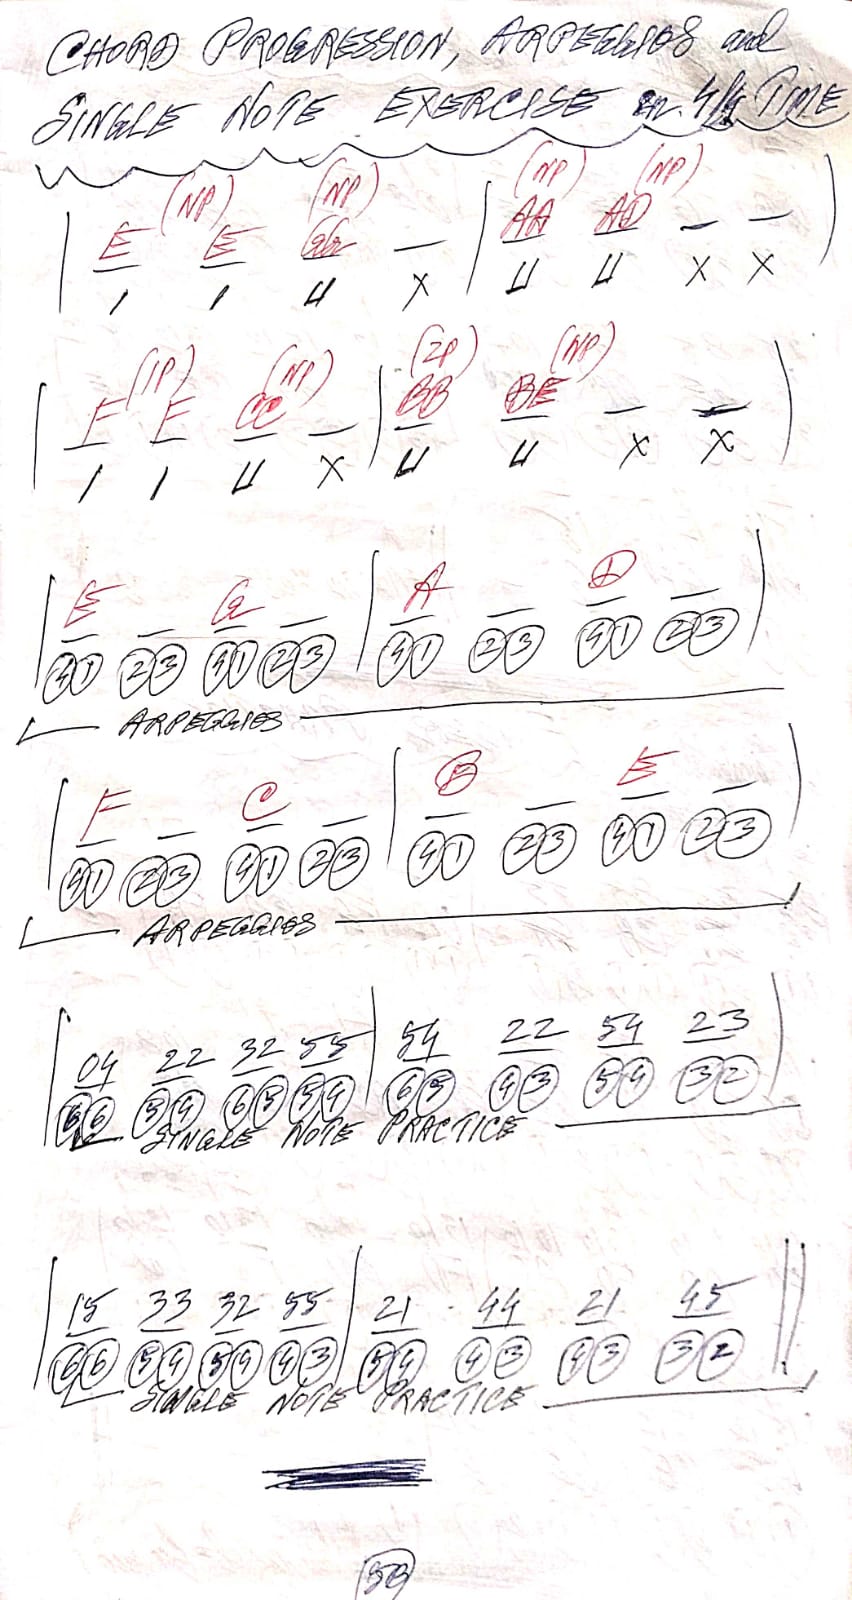 CHORD PROGRESSION, ARPEGGIOS and
SINGLE NOTE EXERCISE in 4/4 TIME
(NP) (NP) (NP) (NP)
E E GG AA AD
X X X
(1P) (NP) (2P) (NP)
F F CC BB BE
X X X
E G A D
41 23 41 23 41 23 41 23
ARPEGGIOS
F C B E
41 23 41 23 41 23 41 23
ARPEGGIOS
04 22 32 55 54 22 54 23
66 54 65 54 65 43 54 32
SINGLE NOTE PRACTICE
15 33 32 55 21 44 21 45
66 54 54 43 54 43 43 32
SINGLE NOTE PRACTICE